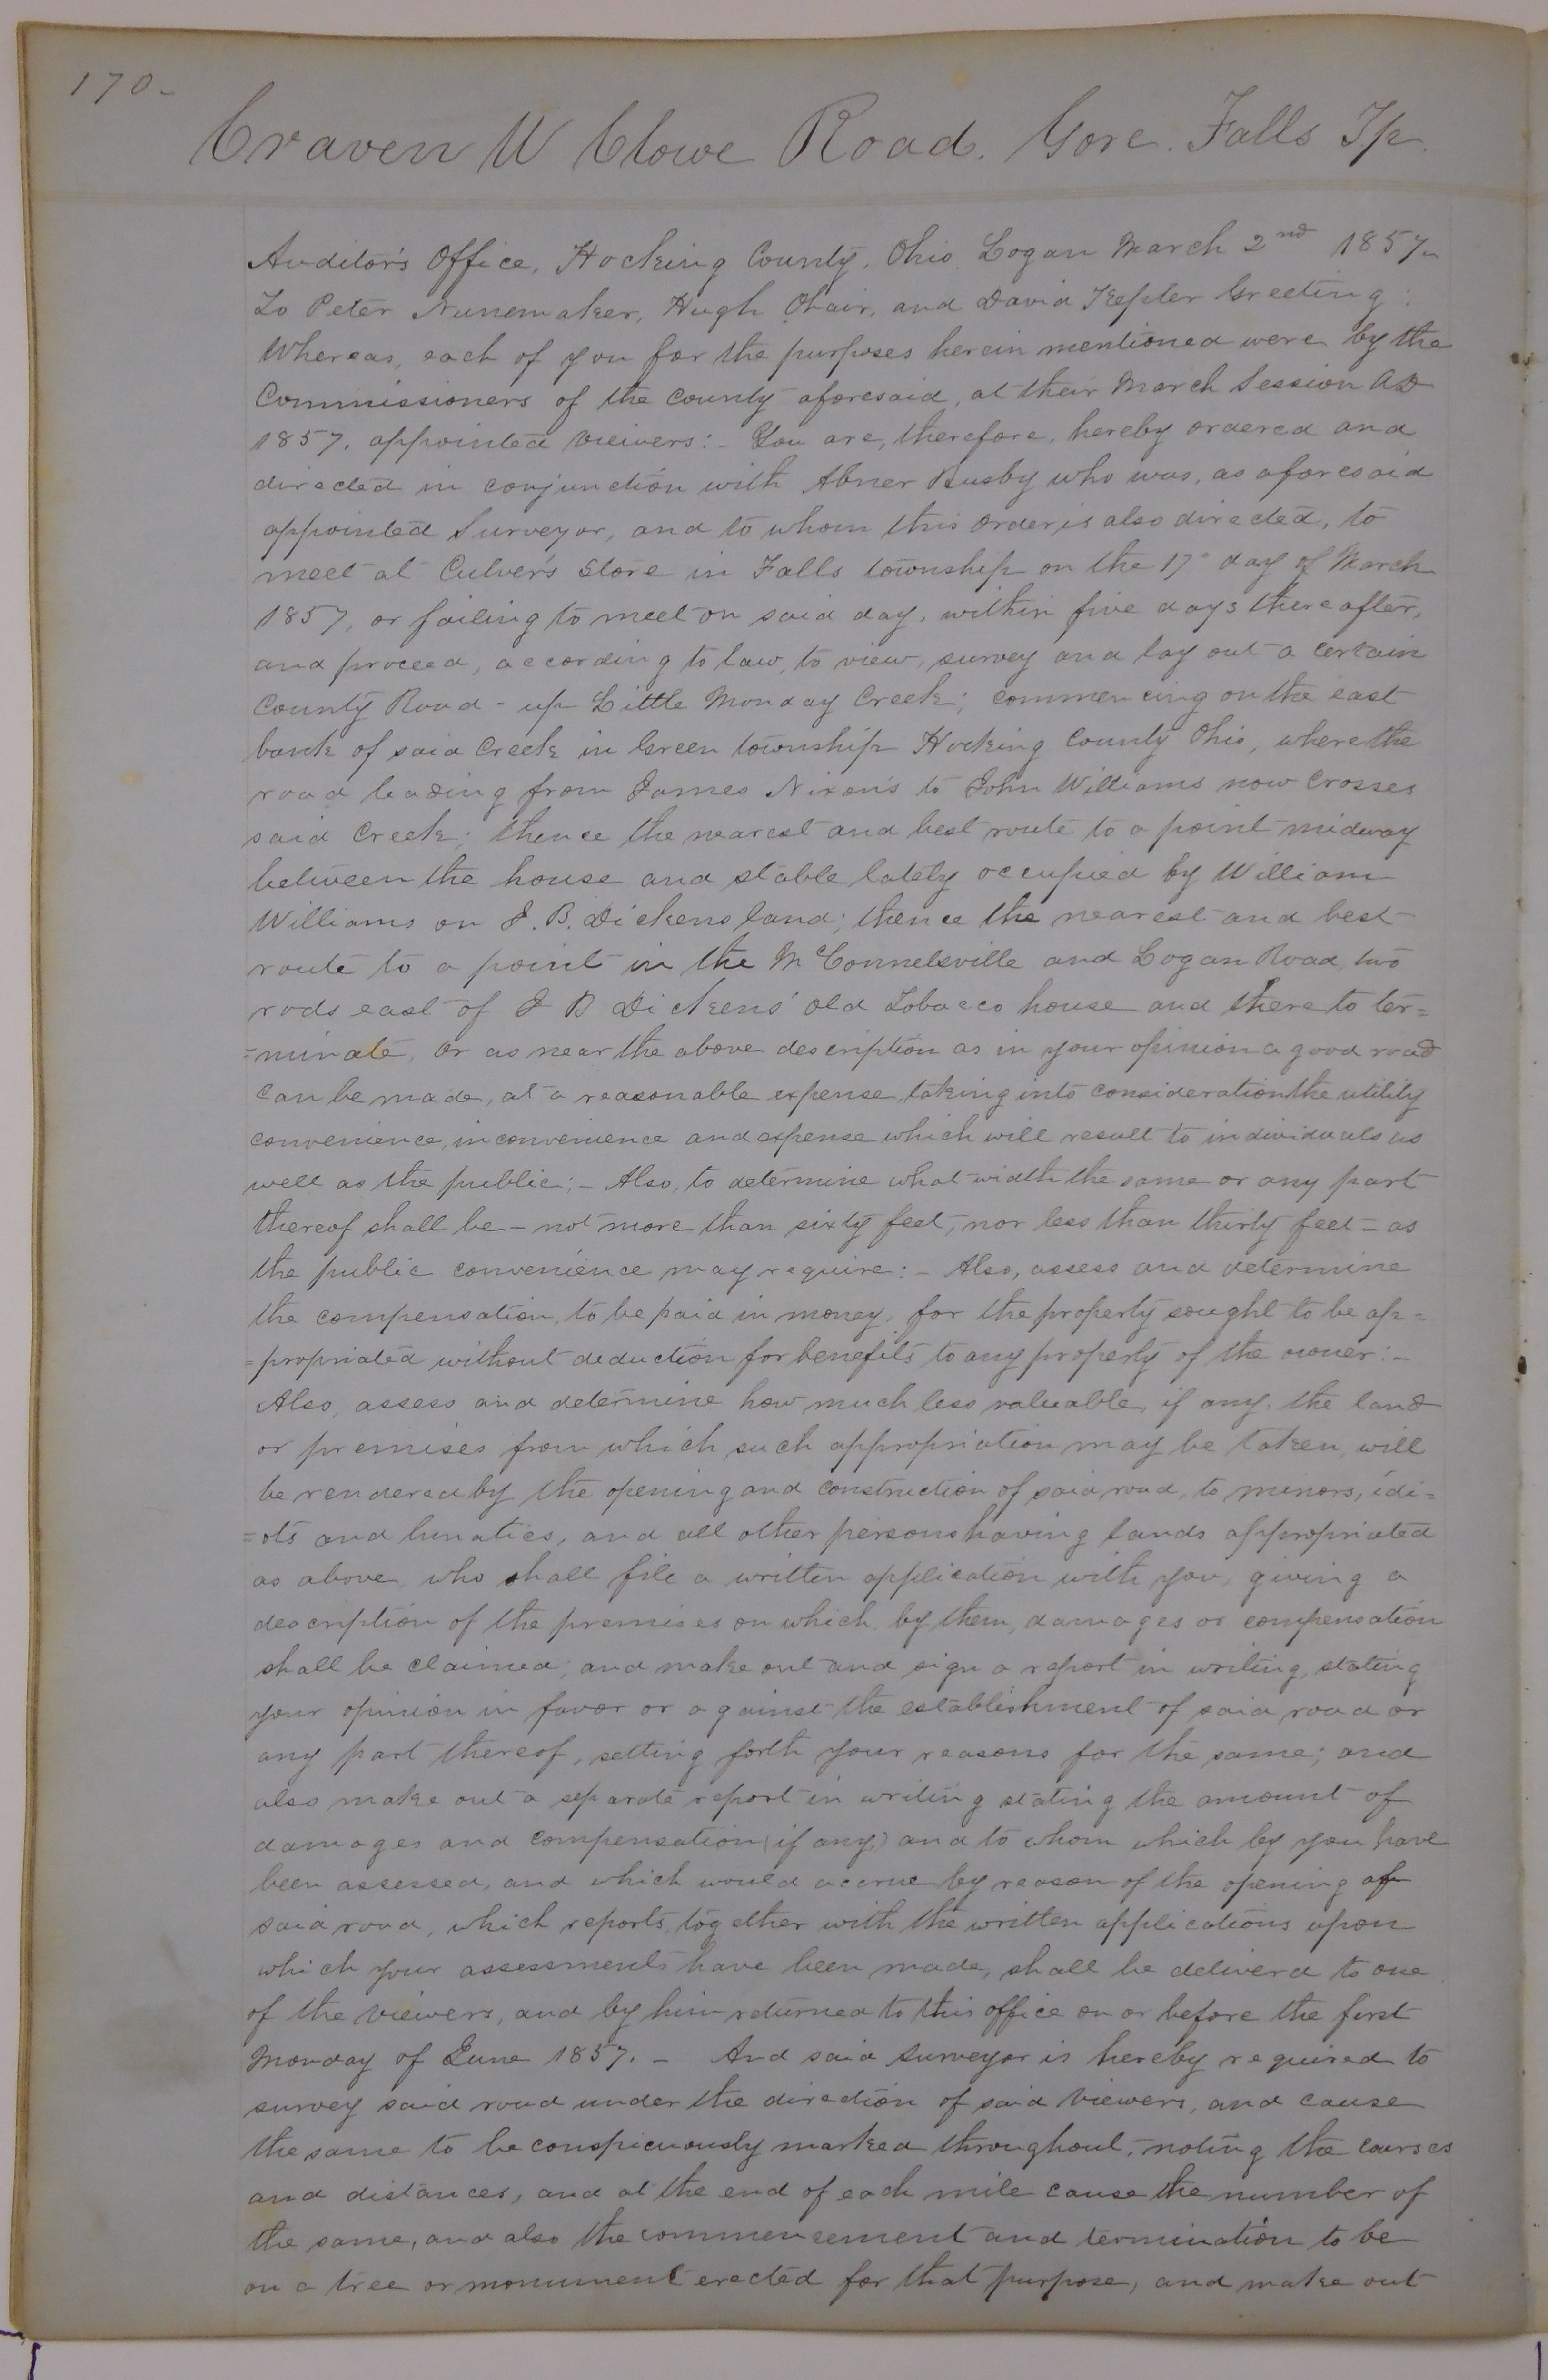 170-
Craven W Clowe Road. Gore. Falls Tp.
Auditor's Office, Hocking County, Ohio, Logan March 2nd 1857.
To Peter Nunemaker, Hugh Ohair, and David Kepler Greeting:
Whereas, each of you for the purposes herein mentioned were by the
Commissioners of the County aforesaid, at their March Session AD
1857, appointed viewers:- You are, therefore, hereby ordered and
directed in conjunction with Abner Busby who was, as aforesaid
appointed Surveyor, and to whom this order is also directed, to
meet at Culver's Store in Falls township on the 17" day of March
1857, or failing to meet on said day, within five days thereafter,
and proceed, according to law, to view, survey and lay out a certain
County Road - up Little Monday Creek; commencing on the east
bank of said Creek in Green township Hocking County Ohio, where the
road leading from James Nixon's to John Williams now crosses
said Creek; thence the nearest and best route to a point midway
between the house and stable lately occupied by William
Williams on J. B. Dickens land; thence the nearest and best
route to a point in the McConnelsville and Logan Road, two
rods east of J B Dickens' old Tobacco house and there to ter=
=minate, or as near the above description as in your opinion a good road
can be made, at a reasonable expense, taking into consideration the utility
convenience, inconvenience and expense which will result to individuals as
well as the public;- Also, to determine what width the same or any part
thereof shall be - not more than sixty feet, nor less than thirty feet - as
the public convenience may require:- Also, assess and determine
the compensation, to be paid in money, for the property sought to be ap=
=propriated without deduction for benefits to any property of the owner:-
Also, assess and determine how much less valuable, if any, the land
or premises from which such appropriation may be taken, will
be rendered by the opening and construction of said road, to minors, idi=
=ots and lunatics, and all other persons having lands appropriated
as above, who shall file a written application with you, giving a
description of the premises on which, by them, damages or compensation
shall be claimed; and make out and sign a report in writing, stating
your opinion in favor or against the establishment of said road or
any part thereof, setting forth your reasons for the same; and
also make out a separate report in writing stating the amount of
damages and compensation (if any) and to whom which by you have
been assessed, and which would accrue by reason of the opening of
said road, which reports, together with the written applications upon
which your assessments have been made, shall be deliverd to one
of the viewers, and by him returned to this office on or before the first
Monday of June 1857. - And said surveyor is hereby required to
survey said road under the direction of said viewers, and cause
the same to be conspicuously marked throughout, noting the courses
and distances, and at the end of each mile cause the number of
the same, and also the commencement and termination to be
on a tree or monument erected for that purpose, and make out